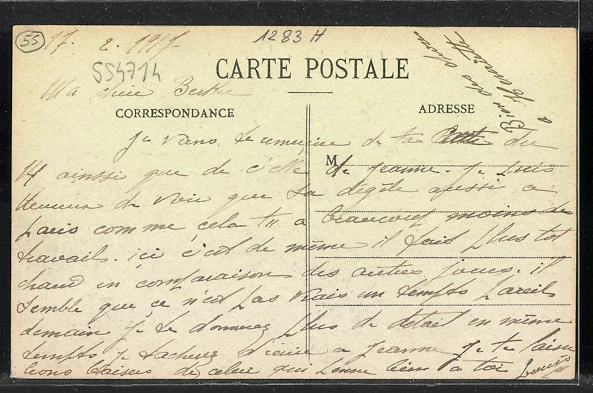 55
17. 2. 1917
1283 H
554714
CARTE POSTALE
Ma chère Berthe
CORRESPONDANCE
ADRESSE
Bien des choses
a
M
Je viens te de ta du
14 ainsi que de c'elle de Jeanne. Je suis
Heureux de voir que sa dégèle aussi a
Paris comme cela tu a beaucoup moins de
travail. ici c'est de même il fais plus tot
chaud en comparaison des autres jours. il
semble que ce n'est pas vrais un temps pareil
demain je te donnerez plus de detail en même
temps je tacherez d'ecrire a Jeanne je te laisse
bons baisers de celui qui pense bien a toi